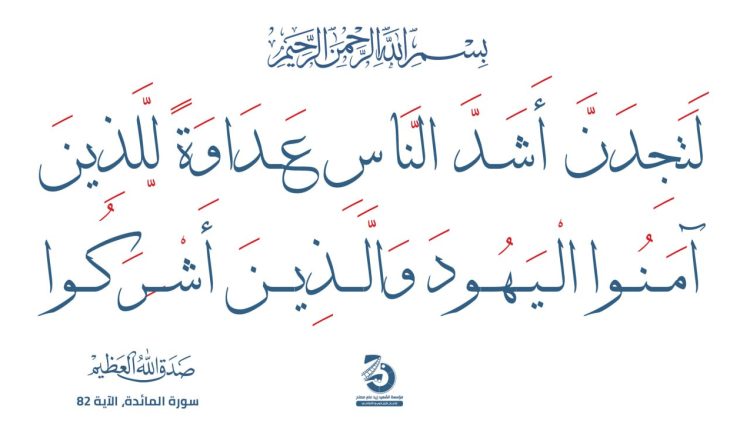 بِسْمِ اللَّهِ الرَّحْمَنِ الرَّحِيمِ
لَتَجِدَنَّ أَشَدَّ النَّاسِ عَدَاوَةً لِّلَّذِينَ
آمَنُوا الْيَهُودَ وَالَّذِينَ أَشْرَكُوا
صَدَقَ اللَّهُ الْعَظِيمُ
سورة المائدة، الآية 82
مؤسسة الشهيد زيد علي مصلح